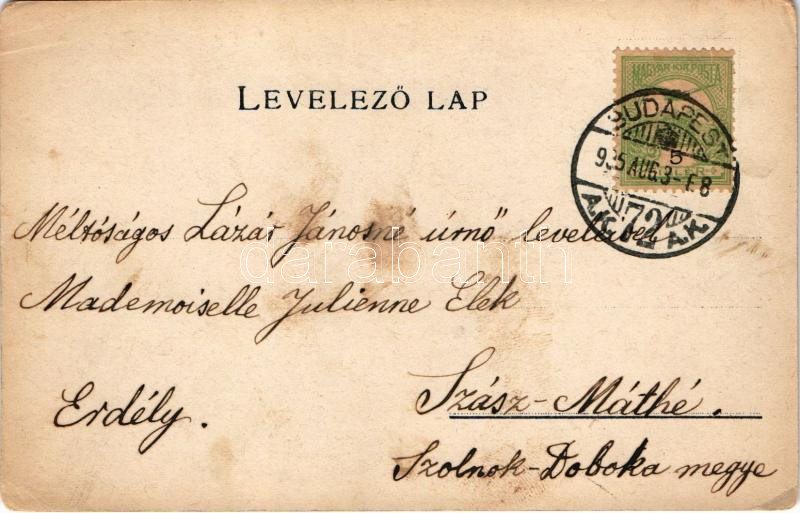 LEVELEZŐ LAP
MAGYAR KIR. POSTA
5
BUDAPEST
72
A.K.
Méltóságos Lázár Jánosné úrnő leveleivel
Mademoiselle Julienne Elek
Erdély.
Szász-Máthé.
Szolnok-Doboka megye
darabanth